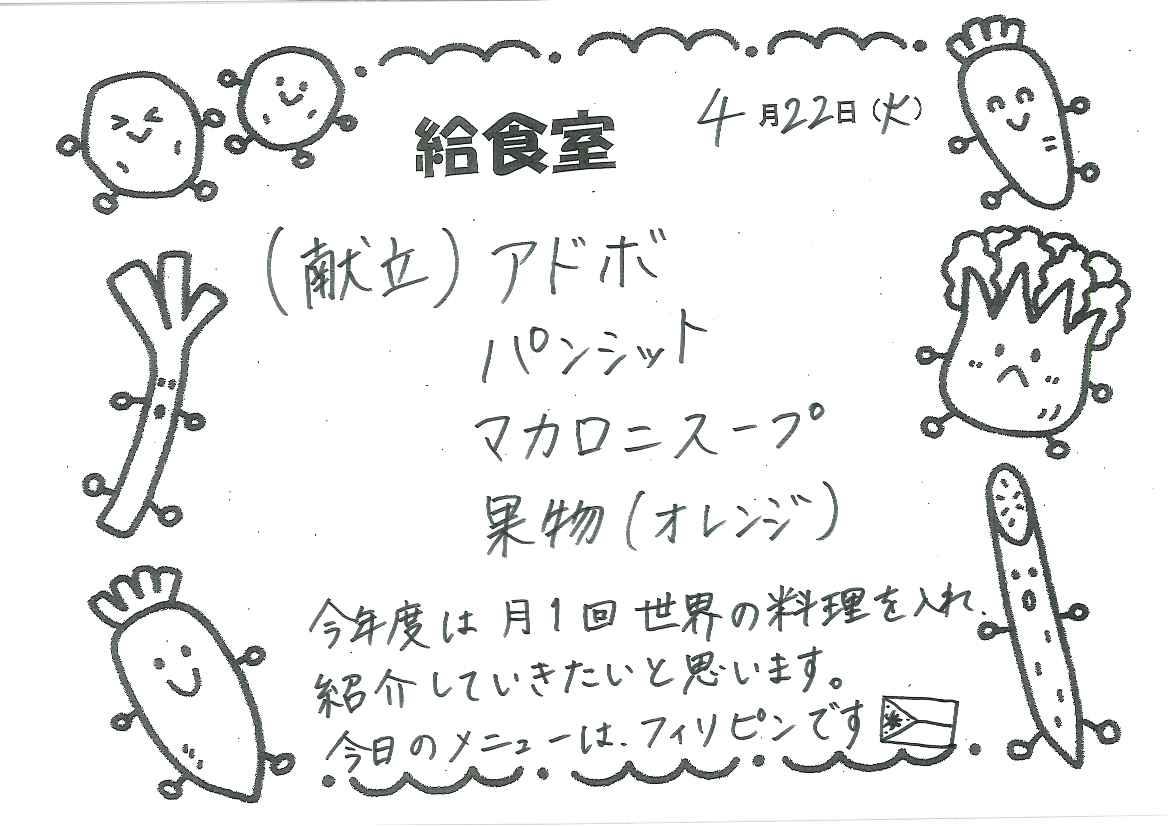 給食室
4月22日(火)
(献立)アドボ
パンシット
マカロニスープ
果物(オレンジ)
今年度は月1回世界の料理を入れ、
紹介していきたいと思います。
今日のメニューは、フィリピンです